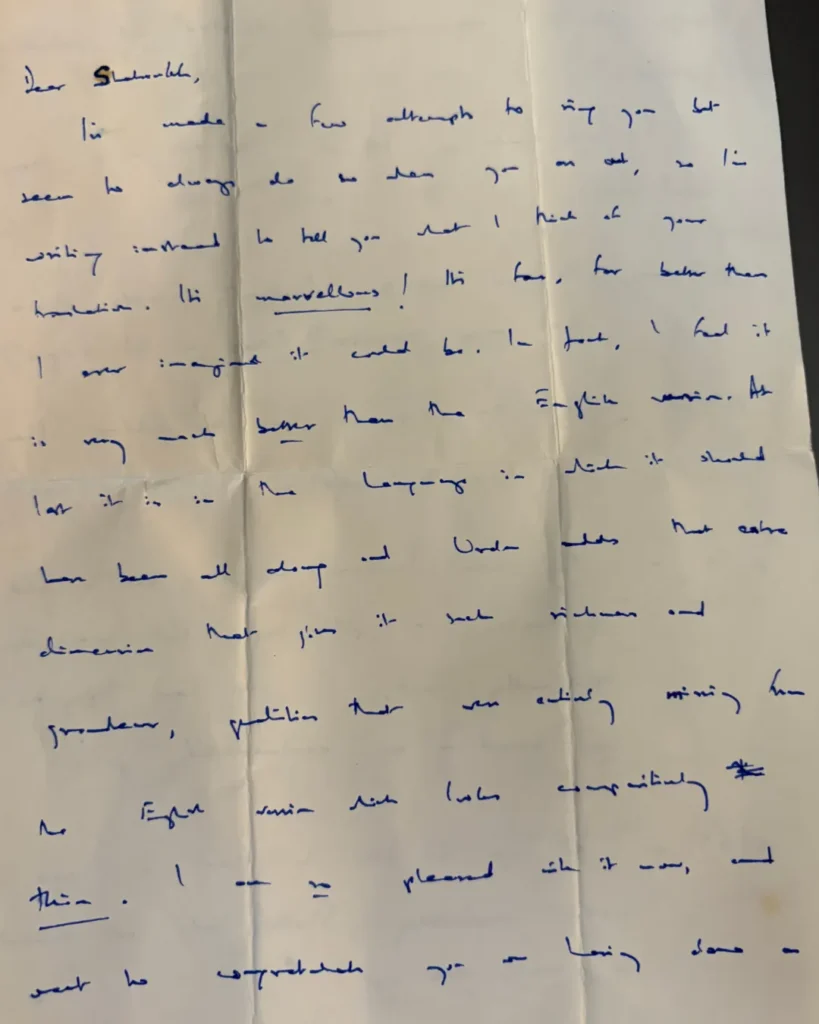 Dear Shahrukh,
I've made a few attempts to ring you but
seem to always do so when you are out, so I'm
writing instead to tell you what I think of your
translation. It's marvellous! It's far, far better than
I ever imagined it could be. In fact, I feel it
is very much better than the English version. At
last it is in the language in which it should
have been all along and Urdu adds that extra
dimension that gives it such richness and
grandeur, qualities that were entirely missing from
the English version which looks comparatively
thin. I am so pleased with it now, and
want to congratulate you on having done a